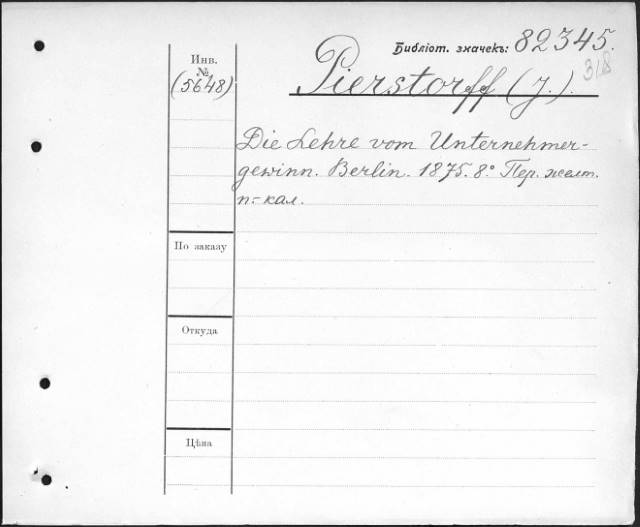 Библіот. значекъ: 82345.
318
Инв.
№
(5648)
Pierstorff (J.).
Die Lehre vom Unternehmer-
gewinn. Berlin. 1875. 8° Пер. желт.
п.-кал.
По заказу
Откуда
Цѣна